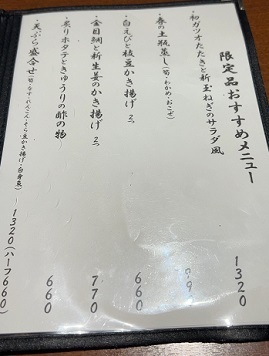 限定品おすすめメニュー
・初ガツオたたきと新玉ねぎのサラダ風 1320
・春の土瓶蒸し(筍・わかめ・おこぜ)
・白えびと枝豆かき揚げ 660
・金目鯛と新生姜のかき揚げ 770
・炙りホタテときゅうりの酢の物 660
・天ぷら盛合せ 1320(ハーフ660)